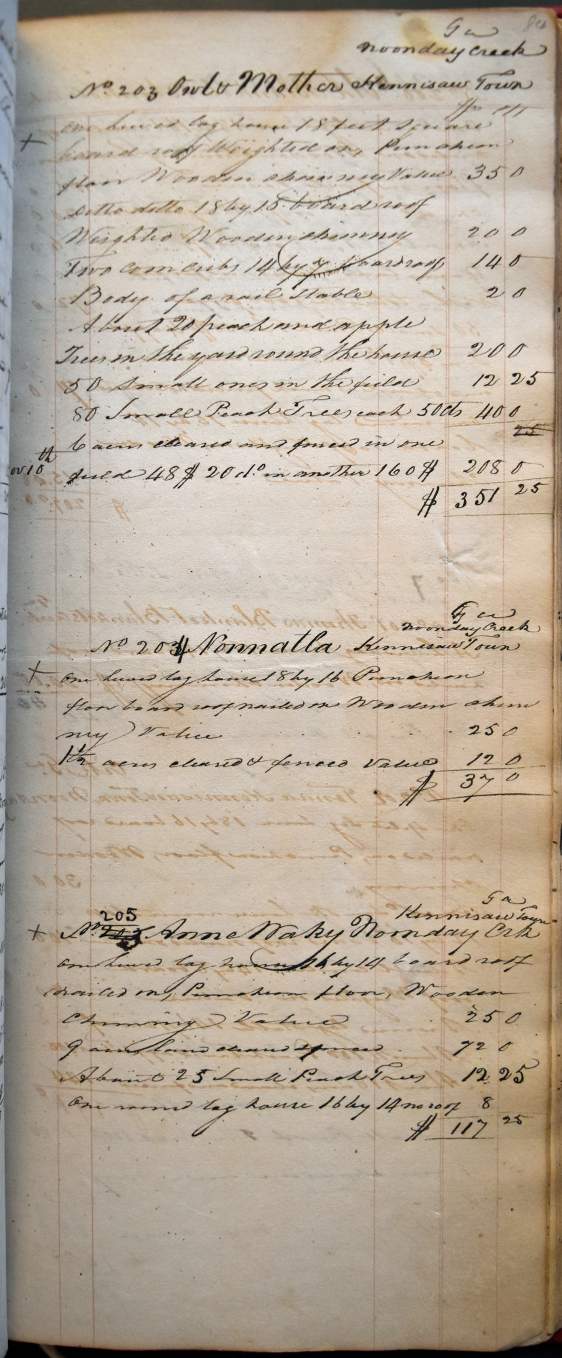 Ga
Noonday Creek
No 203 Owl & Mother Kennisaw Town
$ cts
+ one hewed log house 18 feet square
board roof Weighted on, Puncheon
floor Wooden chimney Value 35 0
ditto ditto 18 by 15 board roof
Weighted Wooden chimney 20 0
Two corn cribs 14 by 7 board roofs 14 0
Body of a rail Stable 2 0
About 20 peach and apple
Trees in the yard round the house 20 0
50 Small ones in the field 12 25
80 Small Peach Trees each 50cts 40 0
25
6 acres cleared and fenced in one
ov 10th field 48$ 20 do. in another 160$ 208 0
$ 351 25
Ga
Noonday Creek
No 204 Nonnatla Kennisaw Town
+ one hewed log house 18 by 16 Puncheon
floor board roof nailed on Wooden chim
ney Value 25 0
1½ acres cleared & fenced Value 12 0
$ 37 0
Ga
205 Kennisaw Town
+ No Anne Waky Noonday Crk
one hewed log house 16 by 14 board roof
nailed on, Puncheon floor, Wooden
Chimney Value 25 0
9 acres land cleared & fenced 72 0
About 25 Small Peach Trees 12 25
one round log house 16 by 14 no roof 8
$ 117 25